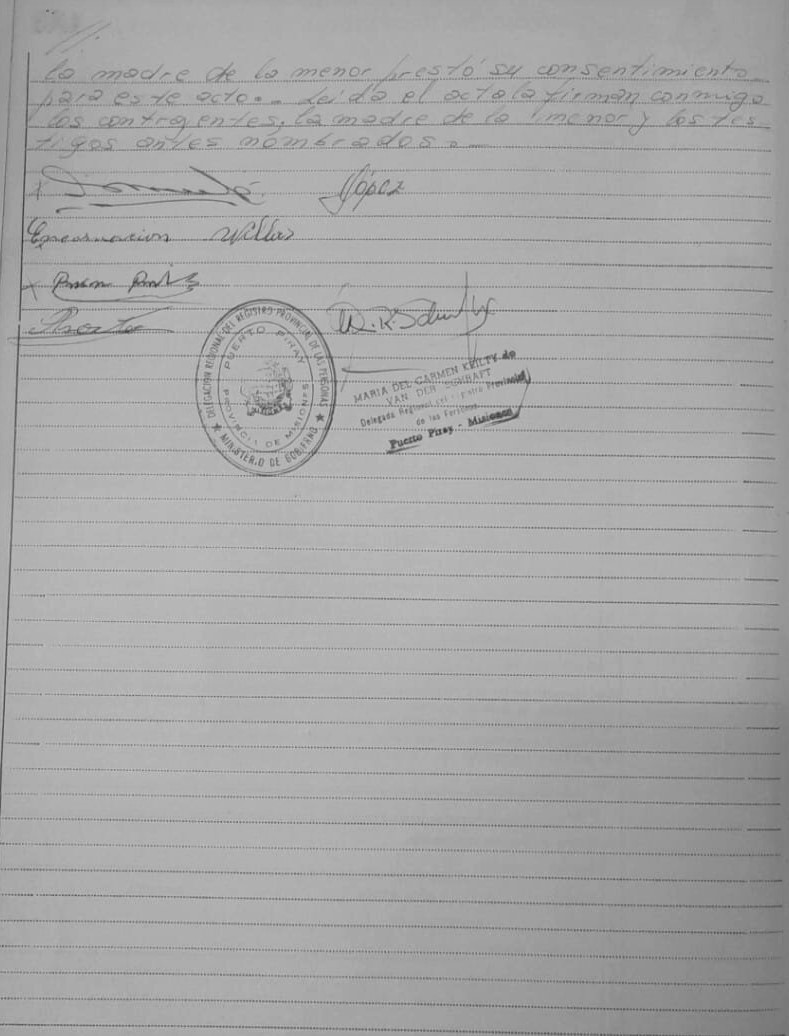 //.
la madre de la menor prestó su consentimiento
para este acto.- Leída el acta la firman conmigo
los contrayentes, la madre de la menor y los tes
tigos antes nombrados.-
López
Encarnacion Villar
DELEGACION REGIONAL DEL REGISTRO PROVINCIAL DE LAS PERSONAS
PUERTO PIRAY
PROVINCIA DE MISIONES
MINISTERIO DE GOBIERNO
MARIA DEL CARMEN KEILTY de
VAN DER SCHRAFT
Delegada Regional del Registro Provincial
de las Personas
Puerto Piray - Misiones